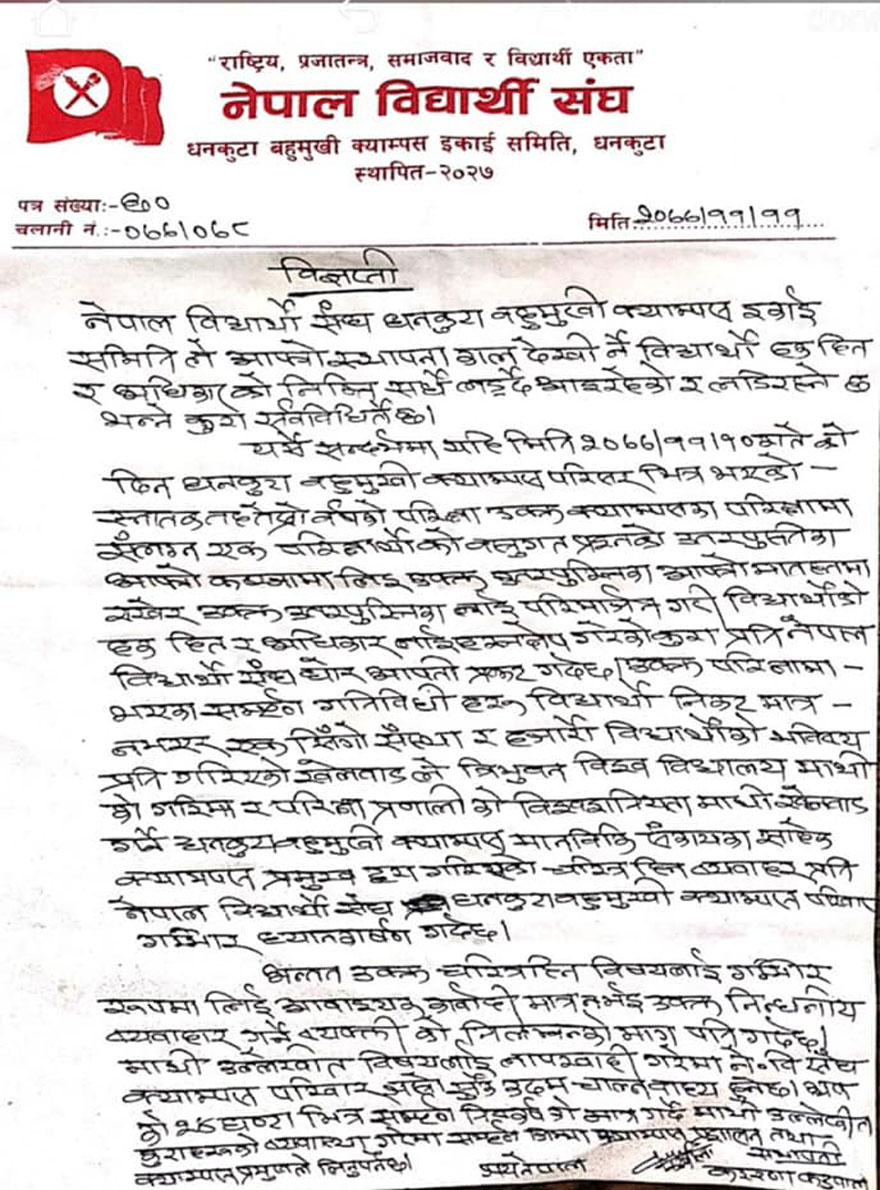 "राष्ट्रिय, प्रजातन्त्र, समाजवाद र विद्यार्थी एकता"
नेपाल विद्यार्थी संघ
धनकुटा बहुमुखी क्याम्पस इकाई समिति, धनकुटा
स्थापित-२०२७
पत्र संख्याः-
चलानी नं.:-
मिति
विज्ञप्ती
नेपाल विद्यार्थी संघ धनकुटा बहुमुखी क्याम्पस इकाई
समिति ले आफ्नो स्थापना काल देखी नै विद्यार्थी हक हित
र अधिकारको निम्ति सधै लड्दै आइरहेको र लडिरहने छ
भन्ने कुरा सर्वविधितै छ।
यसै सन्दर्भमा यहि मिति को
दिन धनकुटा बहुमुखी क्याम्पस परिसर भित्र भएको -
स्नातक तह तेस्रो वर्षको परिक्षा उक्त क्याम्पसका परिक्षामा
संलग्न एक परिक्षार्थीको वस्तुगत प्रश्नको उत्तरपुस्तिका
आफ्नो कब्जामा लिइ उक्त उत्तरपुस्तिका आफ्नो मातहतमा
राखेर उक्त उत्तरपुस्तिका लाई परिमार्जन गरी विद्यार्थीको
हक हित र अधिकार लाई हस्तक्षेप गरेको कुरा प्रति नेपाल
विद्यार्थी संघ घोर आपत्ती प्रकट गर्दछ। उक्त परिक्षामा -
भएका सम्पूर्ण गतिविधी हरू विद्यार्थी निकट मात्र -
नभएर एक सिंगो संस्था र हजारौ विद्यार्थीको भविष्य
प्रति गरिएको खेलवाड ले त्रिभुवन विश्व विद्यालय माथी
को गरिमा र परिक्षा प्रणाली को विश्वसनियता माथी खेलवाड
गर्ने धनकुटा बहुमुखी क्याम्पस मानविकि संकायका
क्याम्पस प्रमुख द्वारा गरिएको चरित्र हिन व्यवाहार प्रति
नेपाल विद्यार्थी संघ धनकुटा बहुमुखी क्याम्पस परिवार
गम्भिर ध्यानाकर्षण गर्दछ।
उक्त चरित्रहिन विषयलाई गम्भिर
रूपमा लिई आवश्यक कार्वाही मात्र नभई उक्त निन्धनीय
व्यवाहार गर्ने व्यक्ती को निलम्बनको माग पनि गर्दछ।
माथी उल्लेखीत विषयलाई लापरवाही गरेमा ने.वि संघ
क्याम्पस परिवार कदम चाल्न वाध्य हुनेछ।
घण्टा भित्र सम्पूर्ण माग गर्दै माथी उल्लेखीत
कुराहरूको गरेमा सम्पूर्ण जिम्मा क्याम्पस प्रशासन तथा
क्याम्पस प्रमुखले लिनुपर्नेछ।
सभापती